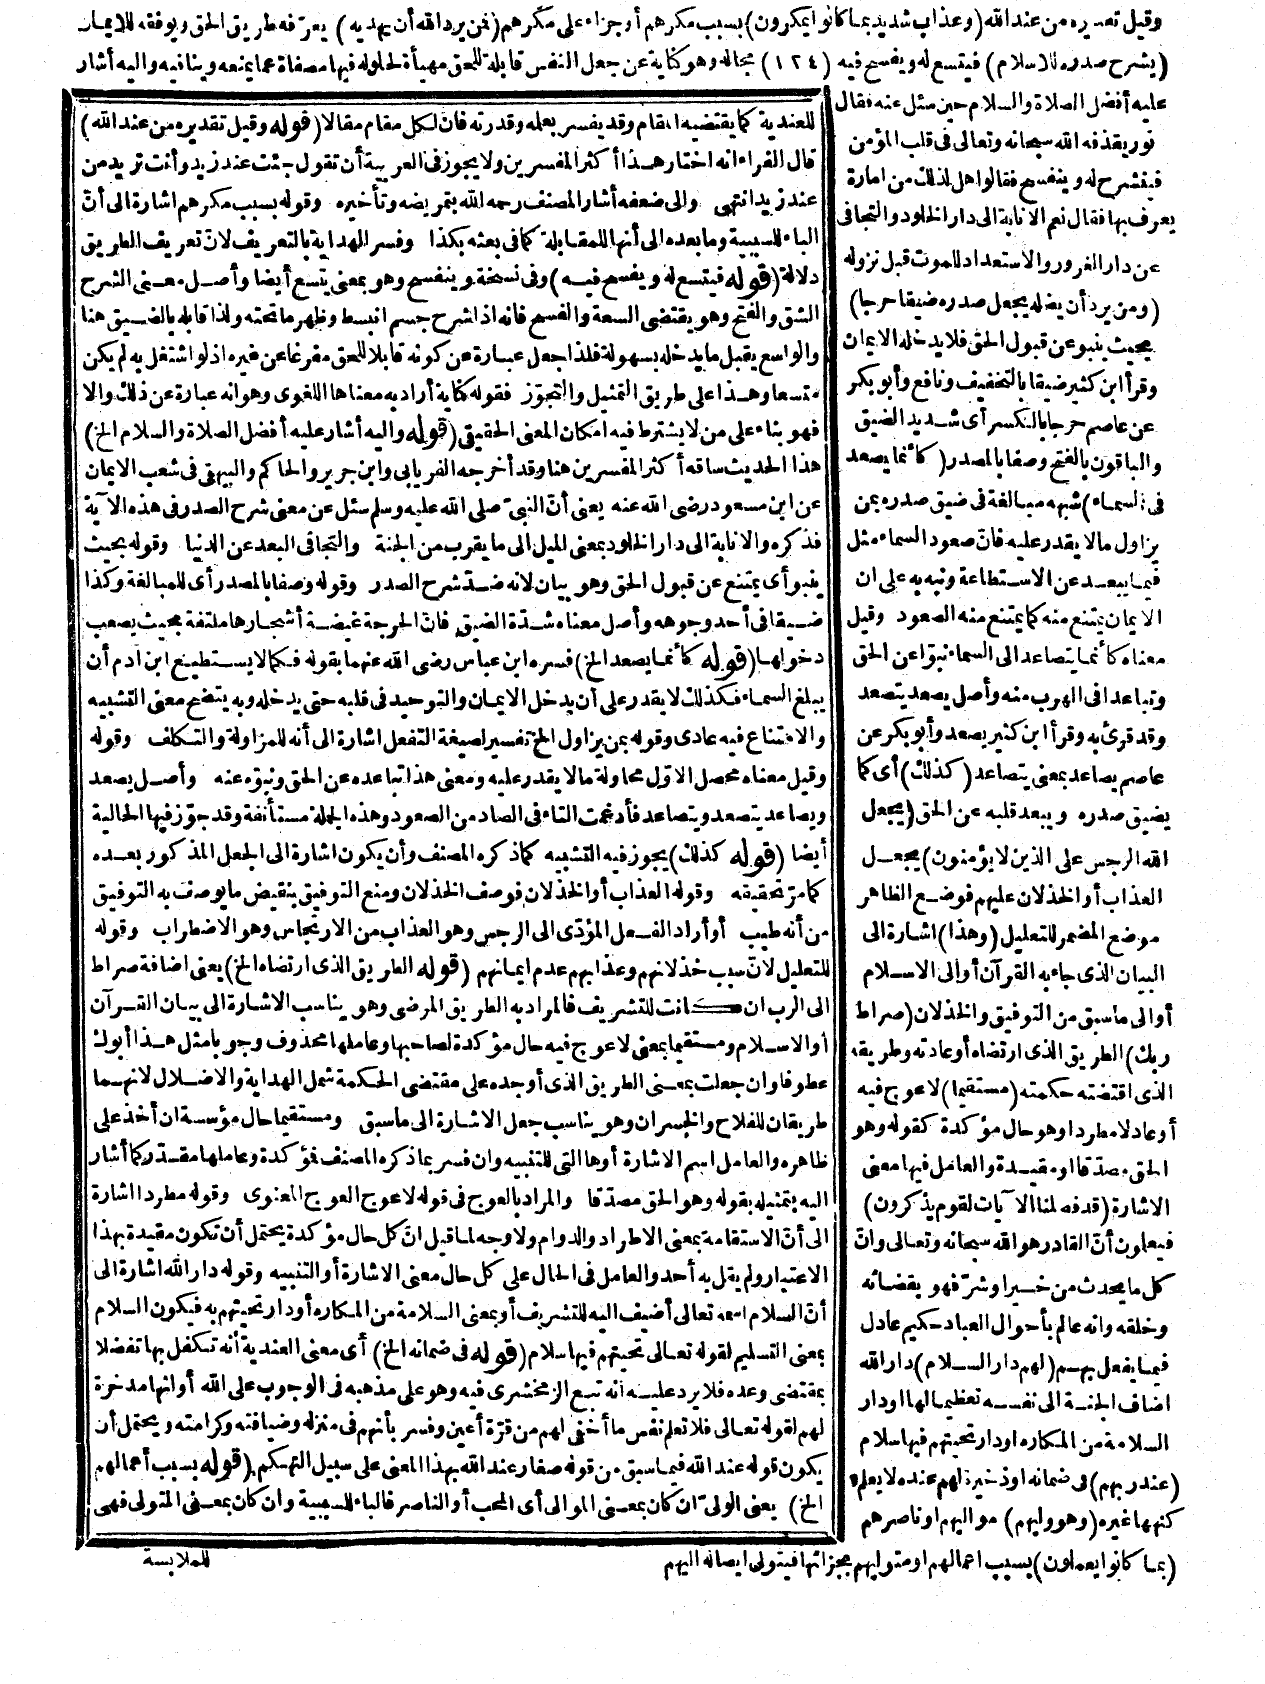 وقيل تقديره من عند الله (وعذاب شديد بما كانوا يمكرون) بسبب مكرهم أو جزاء على مكرهم (فمن يرد الله أن يهديه) يعرّفه طريق الحق ويوفقه للايمان
(يشرح صدره للاسلام) فيتسع له ويفسح فيه (١٢٤) مجاله وهو كناية عن جعل النفس قابلة للحق مهيأة لحلوله فيها مصفاة عما يمنعه وينافيه واليه أشار
عليه أفضل الصلاة والسلام حين سئل عنه فقال
نور يقذفه الله سبحانه وتعالى فى قلب المؤمن
فينشرح له وينفسح فقالوا هل لذلك من امارة
يعرف بها فقال نعم الانابة الى دار الخلود والتجافى
عن دار الغرور والاستعداد للموت قبل نزوله
(ومن يرد أن يضله يجعل صدره ضيقا حرجا)
بحيث ينبو عن قبول الحق فلا يدخله الايمان
وقرأ ابن كثير ضيقا بالتخفيف ونافع وأبو بكر
عن عاصم حرجا بالكسر أى شديد الضيق
والباقون بالفتح وصفا بالمصدر (كأنما يصعد
فى السماء) شبهه مبالغة فى ضيق صدره بمن
يزاول مالا يقدر عليه فانّ صعود السماء مثل
فيما يبعد عن الاستطاعة ونبه به على ان
الايمان يمتنع منه كما يمتنع منه الصعود وقيل
معناه كأنما يتصاعد الى السماء نبوّا عن الحق
وتباعدا فى الهرب منه وأصل يصعد يتصعد
وقد قرئ به وقرأ ابن كثير يصعد وأبو بكر عن
عاصم يصاعد بمعنى يتصاعد (كذلك) أى كما
يضيق صدره ويبعد قلبه عن الحق (يجعل
الله الرجس على الذين لا يؤمنون) يجعل
العذاب أو الخذلان عليهم فوضع الظاهر
موضع المضمر للتعليل (وهذا) اشارة الى
البيان الذى جاء به القرآن أو الى الاسلام
أو الى ما سبق من التوفيق والخذلان (صراط
ربك) الطريق الذى ارتضاه أو عادته وطريقه
الذى اقتضته حكمته (مستقيما) لا عوج فيه
أو عادلا مطردا وهو حال مؤكدة كقوله وهو
الحق مصدّقا او مقيدة والعامل فيها معنى
الاشارة (قد فصلنا الآيات لقوم يذكرون)
فيعلمون أنّ القادر هو الله سبحانه وتعالى وانّ
كل ما يحدث من خير او شرّ فهو بقضائه
وخلقه وانه عالم بأحوال العباد حكيم عادل
فيما يفعل بهم (لهم دار السلام) دار الله
اضاف الجنة الى نفسه تعظيما لها او دار
السلامة من المكاره او دار تحيتهم فيها سلام
(عند ربهم) فى ضمانه او ذخيرة لهم عنده لا يعلم
كنهها غيره (وهو وليهم) مواليهم او ناصرهم
(بما كانوا يعملون) بسبب اعمالهم او متوليهم بجزائها فيتولى ايصاله اليهم
للعندية كما يقتضيه المقام وقد يفسر بعلمه وقدرته فانّ لكل مقام مقالا (قوله وقيل تقديره من عند الله)
قال الفراء انه اختار هذا أكثر المفسرين ولا يجوز فى العربية أن تقول جئت عند زيد وأنت تريد من
عند زيد انتهى والى ضعفه أشار المصنف رحمه الله بتمريضه وتأخيره وقوله بسبب مكرهم اشارة الى أنّ
الباء للسببية وما بعده الى أنها للمقابلة كما فى بعته بكذا وفسر الهداية بالتعريف لانّ تعريف الطريق
دلالة (قوله فيتسع له ويفسح فيه) وفى نسخة وينفسح وهو بمعنى يتسع أيضا وأصل معنى الشرح
الشق والفتح وهو يقتضى السعة والفسح فانه اذا شرح جسم انبسط وظهر ما تحته ولذا قابله بالضيق هنا
والواسع يقبل ما يدخله بسهولة فلذا جعل عبارة عن كونه قابلا للحق مفرغا عن غيره اذ لو اشتغل به لم يكن
متسعا وهذا على طريق التمثيل والتجوّز فقوله كناية أراد به معناها اللغوى وهو انه عبارة عن ذلك والا
فهو بناء على من لا يشترط فيه امكان المعنى الحقيقى (قوله واليه أشار عليه أفضل الصلاة والسلام الخ)
هذا الحديث ساقه أكثر المفسرين هنا وقد أخرجه الفريابى وابن جرير والحاكم والبيهقى فى شعب الايمان
عن ابن مسعود رضى الله عنه يعنى أنّ النبىّ صلى الله عليه وسلم سئل عن معنى شرح الصدر فى هذه الآية
فذكره والانابة الى دار الخلود بمعنى الميل الى ما يقرب من الجنة والتجافى البعد عن الدنيا وقوله بحيث
ينبو أى يمتنع عن قبول الحق وهو بيان لانه ضدّ شرح الصدر وقوله وصفا بالمصدر أى للمبالغة وكذا
ضيقا فى أحد وجوهه وأصل معناه شدّة الضيق فانّ الحرجة غيضة أشجارها ملتفة بحيث يصعب
دخولها (قوله كأنما يصعد الخ) فسره ابن عباس رضى الله عنهما بقوله فكما لا يستطيع ابن آدم أن
يبلغ السماء فكذلك لا يقدر على أن يدخل الايمان والتوحيد فى قلبه حتى يدخله وبه يتضح معنى التشبيه
والامتناع فيه عادى وقوله بمن يزاول الخ تفسير لصيغة التفعل اشارة الى أنه للمزاولة والتكلف وقوله
وقيل معناه محصل الاوّل محاولة مالا يقدر عليه ومعنى هذا تباعده عن الحق ونبوّه عنه وأصل يصعد
ويصاعد يتصعد ويتصاعد فأدغمت التاء فى الصاد من الصعود وهذه الجملة مستأنفة وقد جوّز فيها الحالية
أيضا (قوله كذلك) يجوز فيه التشبيه كما ذكره المصنف وأن يكون اشارة الى الجعل المذكور بعده
كما مرّ تحقيقه وقوله العذاب أو الخذلان فوصف الخذلان ومنع التوفيق بنقيض ما يوصف به التوفيق
من أنه طيب أو أراد الفعل المؤدّى الى الرجس وهو العذاب من الارتجاس وهو الاضطراب وقوله
للتعليل لانّ سبب خذلانهم وعذابهم عدم ايمانهم (قوله الطريق الذى ارتضاه الخ) يعنى اضافة صراط
الى الرب ان كانت للتشريف فالمراد به الطريق المرضى وهو يناسب الاشارة الى بيان القرآن
أو الاسلام ومستقيما بمعنى لا عوج فيه حال مؤكدة لصاحبها وعاملها محذوف وجوبا مثل هذا أبوك
عطوفا وان جعلت بمعنى الطريق الذى أوجده على مقتضى الحكمة شمل الهداية والاضلال لانهما
طريقان للفلاح والخسران وهو يناسب جعل الاشارة الى ما سبق ومستقيما حال مؤسسة ان أخذ على
ظاهره والعامل اسم الاشارة أوها التى للتنبيه وان فسر بما ذكره المصنف فمؤكدة وعاملها مقدّر كما أشار
اليه بتمثيله بقوله وهو الحق مصدّقا والمراد بالعوج فى قوله لا عوج العوج المعنوى وقوله مطردا اشارة
الى أنّ الاستقامة بمعنى الاطراد والدوام ولا وجه لما قيل انّ كل حال مؤكدة يحتمل أن تكون مقيدة بهذا
الاعتبار ولم يقل به أحد والعامل فى الحال على كل حال معنى الاشارة أو التنبيه وقوله دار الله اشارة الى
أنّ السلام اسمه تعالى أضيف اليه للتشريف أو بمعنى السلامة من المكاره أو دار تحيتهم به فيكون السلام
بمعنى التسليم لقوله تعالى تحيتهم فيها سلام (قوله فى ضمانه الخ) أى معنى العندية أنه تكفل بها تفضلا
بمقتضى وعده فلا يرد عليه أنه تبع الزمخشرى فيه وهو على مذهبه فى الوجوب على الله أو انها مدخرة
لهم لقوله تعالى فلا تعلم نفس ما أخفى لهم من قرّة أعين وفسر بأنهم فى منزله وضيافته وكرامته ويحتمل أن
يكون قوله عند الله فيما سبق من قوله صغار عند الله بهذا المعنى على سبيل التهكم (قوله بسبب أعمالهم
الخ) يعنى الولىّ ان كان بمعنى الموالى أى المحب أو الناصر فالباء للسببية وان كان بمعنى المتولى فهى
للملابسة